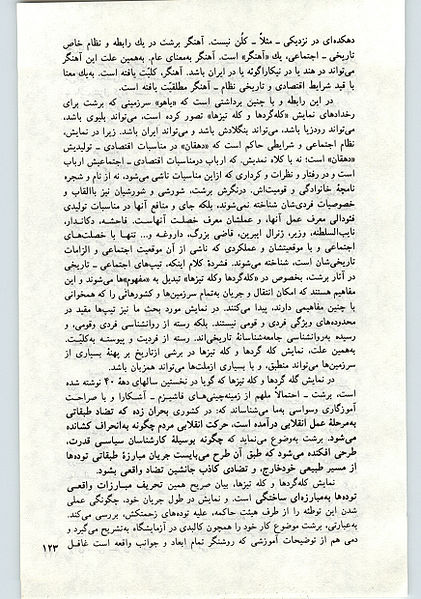 دهکده‌ای در نزدیکی ـ مثلاً ـ کلُن نیست. آهنگر برشت در یك رابطه و نظام خاص
تاریخی ـ اجتماعی، یك «آهنگر» است. آهنگر به‌معنای عام. به‌همین علت این آهنگر
می‌تواند در هند یا در نیکاراگوئه یا در ایران باشد. آهنگر، کلیّت یافته است. به‌یك معنا
با قید شرایط اقتصادی و تاریخی نظام ـ آهنگر مطلقیّت یافته است.
در این رابطه و با چنین برداشتی است که «یاهو» سرزمینی که برشت برای
رخدادهای نمایش «کله‌گردها و کله تیزها» تصور کرده است، می‌تواند بلیوی باشد،
می‌تواند رودزیا باشد، می‌تواند بنگلادش باشد و می‌تواند ایران باشد. زیرا در نمایش،
نظام اجتماعی و شرایطی حاکم است که «دهقان» در مناسبات اقتصادی ـ تولیدیش
«دهقان» است؛ نه با کلاه نمدیش. که ارباب درمناسبات اقتصادی ـ اجتماعیش ارباب
است و در رفتار و نظرات و کرداری که ازاین مناسبات ناشی می‌شود، نه از نام و شجره
نامچهٔ خانوادگی و قومیت‌اش. درنگرش برشت، شورشی و شورشیان نیز باالقاب و
خصوصیات فردی‌شان شناخته نمی‌شوند، بلکه جای و منافع آنها در مناسبات تولیدی
فئودالی معرف عمل آنها، و عملشان معرف خصلت آنهاست. فاحشه، دکانـدار،
نایب‌السلطنه، وزیر، ژنرال ایبرین، قاضی بزرگ، داروغـه و... تنهـا با خصلت‌های
اجتماعی و با موقعیتشان و عملکردی که ناشی از آن موقعیت اجتماعی و الزامات
تاریخی‌شان است، شناخته می‌شوند. فشردهٔ کلام اینکه، تیپ‌های اجتماعی ـ تاریخی
در آثار برشت، بخصوص در «کله‌گردها وکله تیزها» تبدیل به «مفهوم»ها می‌شوند و این
مفاهیم هستند که امکان انتقال و جریان به‌تمام سرزمین‌ها و کشورهائی را که همخوانی
با چنین مفاهیمی دارند، پیدا می‌کنند. در نمایش مورد بحث ما نیز تیپ‌ها مقید در
محدوده‌های ویژگی فردی و قومی نیستند. بلکه رسته از روانشناسی فردی وقومی، و
رسیده به‌روانشناسی جامعه‌شناسانهٔ تاریخی‌اند. رسته از فردیت و پیوسته به‌کلیّـت.
به‌همین علت، نمایش کله گردها و کله تیزها در برشی ازتاریخ بر پهنهٔ بسیاری از
سرزمین‌ها می‌تواند منطبق، و با بسیاری ازملت‌ها می‌تواند همزبان باشد.
در نمایش گله گردها و کله تیزها که گویا در نخستین سالهای دههٔ ۴۰ نوشته شده
است، برشت ـ احتمالاً ملهم از زمینه‌چینی‌های فاشیزم ـ آشکارا و با صراحت
آموزگاری وسواسی به‌ما می‌شناساند که: در کشوری بحران زده که تضاد طبقاتی
به‌مرحلهٔ عمل انقلابی درآمده است. حرکت انقلابی مردم چگونه به‌انحراف کشانده
می‌شود. برشت به‌وضوح می‌نماید که چگونه بوسیلهٔ کارشناسان سیاسـی قدرت،
طرحی افکنده می‌شود که طبق آن طرح می‌بایست جریان مبارزهٔ طبقاتی توده‌ها
از مسیر طبیعی خودخارج، و تضادی کاذب جانشین تضاد واقعی بشود.
نمایش کله‌گردها و کله تیزها، بیان صریح همین تحریف مبارزات واقعـی
توده‌ها به‌مبارزه‌ای ساختگی است. و نمایش در طول جریان خود، چگونگی عملی
شدن این توطئه را از طرف هیئت حاکمه، علیه توده‌های زحمتکش، بررسی می‌کند.
به‌عبارتی، برشت موضوع کار خود را همچون کالبدی در آزمایشگاه به‌تشریح می‌گیرد و
دمی هم از توضیحات آموزشی که روشنگر تمام ابعاد و جوانب واقعه است غافـل
۱۲۳